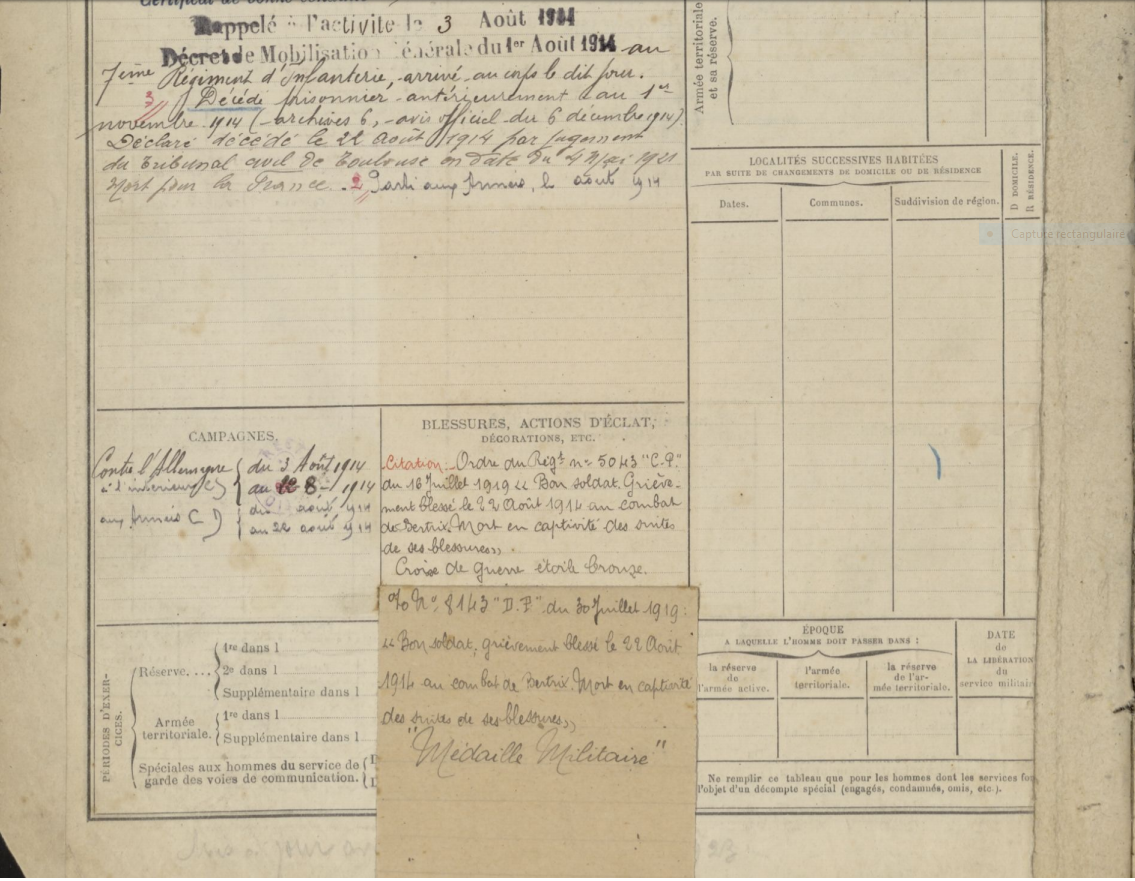 Certificat de bonne conduite
Rappelé à l'activité le 3 Août 1914
Décret de Mobilisation Générale du 1er Août 1914 au
7ème Régiment d'Infanterie, arrivé au corps le dit jour.
3 Décédé prisonnier antérieurement au 1er
novembre 1914 (archives 6, avis officiel du 6 décembre 1914).
Déclaré décédé le 22 Août 1914 par jugement
du Tribunal civil de Toulouse en date du 4 Mai 1921
Mort pour la France. 2 Parti aux Armées, le août 1914
Armée territoriale
et sa réserve.
LOCALITÉS SUCCESSIVES HABITÉES
PAR SUITE DE CHANGEMENTS DE DOMICILE OU DE RÉSIDENCE
Dates.
Communes.
Subdivision de région.
D DOMICILE.
R RÉSIDENCE.
Capture rectangulaire
CAMPAGNES.
Contre l'Allemagne du 3 Août 1914
à l'intérieur C) au 8 1914
aux Armées C D du août 1914
au 22 août 1914
BLESSURES, ACTIONS D'ÉCLAT,
DÉCORATIONS, ETC.
Citation: Ordre du Régt n° 5043 "C.P."
du 16 Juillet 1919 " Bon soldat. Griève-
ment blessé le 22 Août 1914 au combat
de Bertrix. Mort en captivité des suites
de ses blessures".
Croix de guerre étoile bronze.
N° 8143 "D.P" du 30 Juillet 1919:
" Bon soldat, grièvement blessé le 22 Août
1914 au combat de Bertrix. Mort en captivité
des suites de ses blessures"
"Médaille Militaire"
PÉRIODES D'EXER-
CICES.
Réserve....
1re dans l
2e dans l
Supplémentaire dans l
Armée
territoriale.
1re dans l
Supplémentaire dans l
Spéciales aux hommes du service de
garde des voies de communication.
ÉPOQUE
A LAQUELLE L'HOMME DOIT PASSER DANS :
la réserve
de
l'armée active.
l'armée
territoriale.
la réserve
de l'ar-
mée territoriale.
DATE
de
LA LIBÉRATION
du
service militair
Ne remplir ce tableau que pour les hommes dont les services fo
l'objet d'un décompte spécial (engagés, condamnés, omis, etc.).